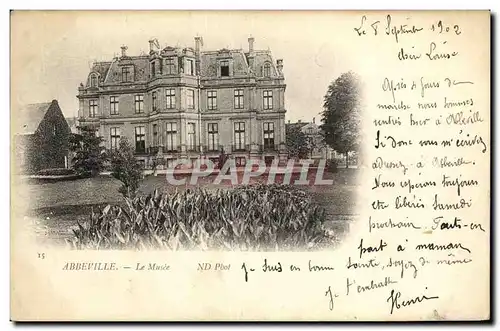 Le 8 Septembre 1902
Chère Louise
Après 4 jours de
marche nous sommes
rentrés hier à Abbeville
Si donc vous m'écrivez
adressez à Abbeville.
Nous espérons toujours
être libérés Samedi
prochain. Fais-en
part à maman
CPARAMA.FR
15
ABBEVILLE. — Le Musée ND Phot
Je suis en bonne santé, soyez de même
Je t'embrasse
Henri